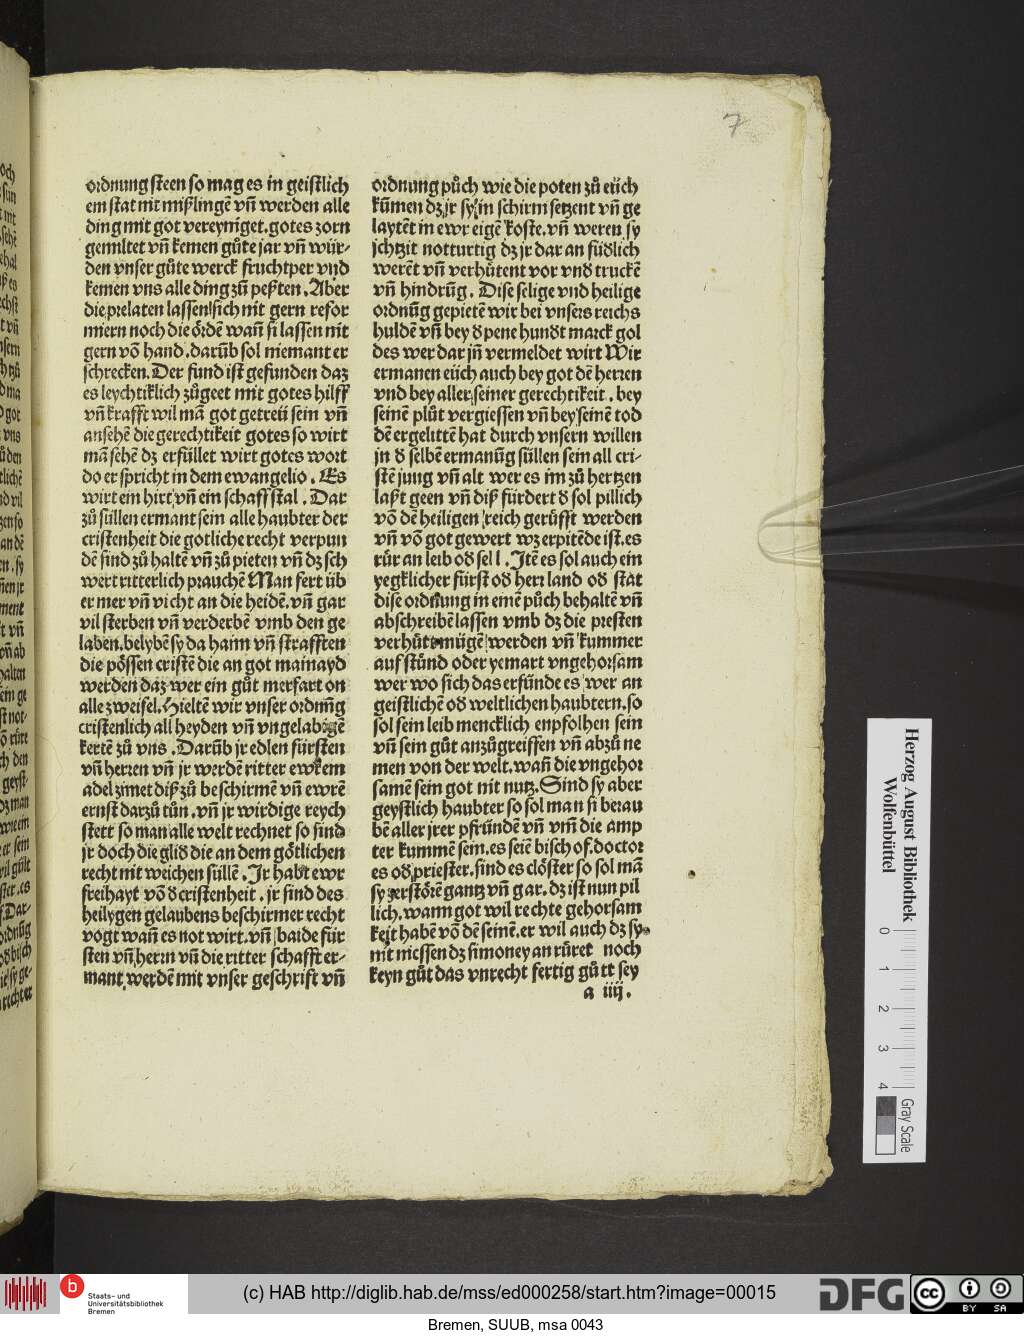 7
ordnung steen so mag es in geistlich
em stat nit mißlingē vñ werden alle
ding mit got vereyniget. gotes zorn
gemiltet vñ kemen gůte jar vñ wür-
den vnser gůte werck fruchtper vnd
kemen vns alle ding zů peßten. Aber
die prelaten lassen sich nit gern refor
miern noch die ördē wañ si lassen nit
gern vō hand. darūb sol niemant er
schrecken. Der fund ist gefunden daz
es leychtiklich zůgeet mit gotes hilff
vñ krafft wil mā got getreü sein vñ
ansehē die gerechtikeit gotes so wirt
mā sehē dz erfüllet wirt gotes wort
do er spricht in dem ewangelio. Es
wirt ein hirt vñ ein schaffstal. Dar
zů süllen ermant sein alle haubter der
cristenheit die götliche recht verpun
dē sind zů haltē vñ zů pieten vñ dz sch
wert ritterlich prauchē Man fert üb
er mer vñ vicht an die heidē. vñ gar
vil sterben vñ verderbē vmb den ge
laben. belybē sy da haim vñ strafften
die pössen cristē die an got mainayd
werden daz wer ein gůt merfart on
alle zweifel. Hieltē wir vnser ordnūg
cristenlich all heyden vñ vngelabigē
kertē zů vns. Darūb jr edlen fürsten
vñ herren vñ jr werdē ritter ewkem
adel zimet diß zů beschirmē vñ ewrē
ernst darzů tůn. vñ jr wirdige reych
stett so man alle welt rechnet so sind
jr doch die glid die an dem götlichen
recht nit weichen süllē. Jr habt ewr
freihayt vō d̄ cristenheit. jr sind des
heilygen gelaubens beschirmer recht
vogt wañ es not wirt. vñ baide für
sten vñ herrn vñ die ritter schafft er-
mant werdē mit vnser geschrift vñ
ordnung půch wie die poten zů eüch
kūmen dz jr sy in schirm setzent vñ ge
laytēt in ewr eigē koste. vñ weren sy
jchtzit notturtig dz jr dar an füdlich
werēt vñ verhütent vor vnd̄ truckē
vñ hindrūg. Dise selige vnd heilige
ordnūg gepietē wir bei vnsers reichs
huldē vñ bey d̄ pene hundt marck gol
des wer dar jñ vermeldet wirt Wir
ermanen eüch auch bey got dē herren
vnd bey aller seiner gerechtikeit. bey
seinē plůt vergiessen vñ bey seinē tod
dē er gelittē hat durch vnsern willen
jn d̄ selbē ermanūg süllen sein all cri-
stē jung vñ alt wer es im zů hertzen
laßt geen vñ diß fürdert d̄ sol pillich
vō dē heiligen reich gerüfft werden
vñ vō got gewert wz er pitēde ist. es
rür an leib od̄ sell. Jtē es sol auch ein
yegklicher fürst od̄ herr land od̄ stat
dise ordnung in einē půch behaltē vñ
abschreibē lassen vmb dz die presten
verhütt mügē werden vñ kummer
auf stünd oder yemart vngehorsam
wer wo sich das erfünde es wer an
geistlichē od̄ weltlichen haubtern. so
sol sein leib mencklich enpfolhen sein
vñ sein gůt anzůgreiffen vñ abzů ne
men von der welt. wañ die vngehor
samē sein got nit nutz. Sind sy aber
geystlich haubter so sol man si berau
bē aller jrer pfründē vñ vm̄ die amp
ter kummē sein. es seiē bischof. doctor
es od̄ priester. sind es clöster so sol mā
sy zerstörē gantz vñ gar. dz ist nun pil
lich. wann got wil rechte gehorsam
keit habē vō dē seinē. er wil auch dz sy
nit niessen dz simoney an rüret noch
keyn gůt das vnrecht fertig gůtt sey
a iiij.
Herzog August Bibliothek
Wolfenbüttel
0 1 2 3 4
Gray Scale
Staats- und
Universitätsbibliothek
Bremen
(c) HAB http://diglib.hab.de/mss/ed000258/start.htm?image=00015
DFG
cc BY SA
Bremen, SUUB, msa 0043